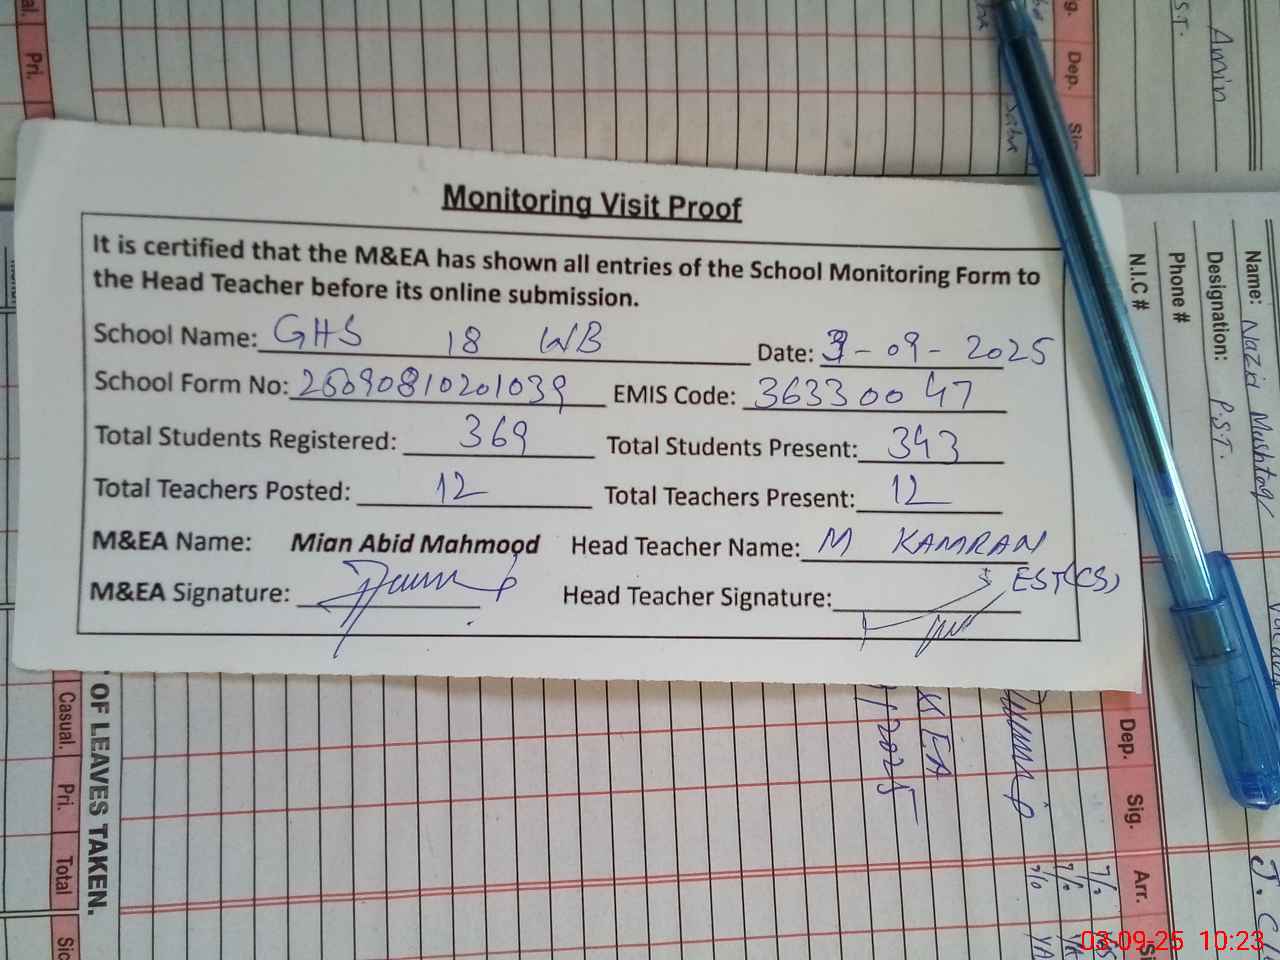 Monitoring Visit Proof
It is certified that the M&EA has shown all entries of the School Monitoring Form to
the Head Teacher before its online submission.
School Name: GHS 18 WB Date: 3-09-2025
School Form No: 25090810201039 EMIS Code: 36330047
Total Students Registered: 369 Total Students Present: 343
Total Teachers Posted: 12 Total Teachers Present: 12
M&EA Name: Mian Abid Mahmood Head Teacher Name: M KAMRAN
M&EA Signature: Head Teacher Signature: EST(CS)
Pri.
Dep.
Amin
Name: Nazid Mushtaq
Designation: P.ST.
Phone #
N.I.C #
OF LEAVES TAKEN.
Casual. Pri. Total
Dep. Sig. Arr.
/2025
03-09-25 10:23